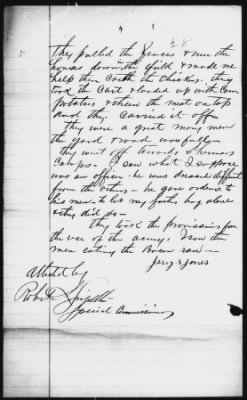 28
5
They pulled the fences & run the
horses down the field & made me
help them catch the chickens. they
took the Cart & loaded up with Corn
potatoes & threw the meat on top
And they carried it off
They were a great many men
the yard & road was full
they went off towards
Camps. I saw what I suppose
was an officer he was dressed different
from the others - he gave orders to
his men to let my fathers hog alone
& they did so -
They took the provisions for
the use of the army. I saw the
men eating the Bacon raw -
Jerry S Jones
Attested by
Robert
Special Commissioner